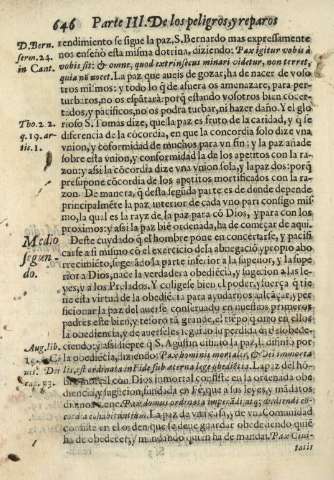 646 Parte III. De los peligros, y reparos
D. Bern. serm. 24. in Cant.
rendimiento se sigue la paz. S. Bernardo mas expressamente
nos enseñó esta misma dotrina, diziendo: Pax igitur vobis à
vobis sit: & omne, quod extrinsecus minari videtur, non terret,
quia nō nocet. La paz que aueis de gozar, ha de nacer de voso
tros mismos: y todo lo q̄ de afuera os amenazare, para per-
turbaros, no os espātará: porq̄ estando vosotros bien cōcer-
tados, y pacificos, no os podrá turbar, ni hazer daño. Y el glo
Tho. 2.2. q. 19. artic. 1.
rioso S. Tomas dize, que la paz es fruto de la caridad, y q̄ se
diferencia de la cōcordia, en que la concordia solo dize vna
vnion, y cōformidad de muchos para vn fin: y la paz añade
sobre esta vnion, y conformidad la de los apetitos con la ra-
zon: y assi la cōcordia dize vna vnion sola, y la paz dos: porq̄
presupone cōcordia de los apetitos mortificados con la ra-
zon. De manera, q̄ desta segūda parte es de donde depende
principalmēte la paz interior de cada vno para consigo mis-
mo, la qual es la rayz de la paz para cō Dios, y para con los
proximos: y assi la paz biē ordenada, ha de començar de aqui.
Medio segundo.
Deste cuydado q̄ el hombre pone en concertarse, y pacifi
carse a si mismo cō el exercicio de la abnegació y propio abo
rrecimiēto, sugetādo la parte inferior a la superior, y la supe
rior a Dios, nace la verdadera obediēcia, y sugecion a las le-
yes, y a los Prelados. Y coligese bien el poder, y fuerça q̄ tie
ne esta virtud de la obediēcia para ayudarnos a alcāçar, y per-
ficionar la paz del
padres este bien, y tesoro tā grande, el tiēpo q̄
la obediencia, y
Aug. lib.
ciendo: y assi siēpre q̄ S. Agustin
la obediēcia, diziendo: Pax hominis mortalis, & Dei immorta
lis, est ordinata in fide sub aeterna lege obediētia. La paz del hō-
bre mortal con Dios inmortal consiste en la ordenada obe
diencia, y sugecion, fundada en Fè, que a sus leyes, y mādatos
Pax domus ordinata imperādi, atq̄ obediendi
La paz de vna casa, y de vna Comunidad
consiste en el orden que se deue guardar obedeciendo quiē
ha de obedecer, y mandando quien ha de mandar. Pax Ciui-
tatis